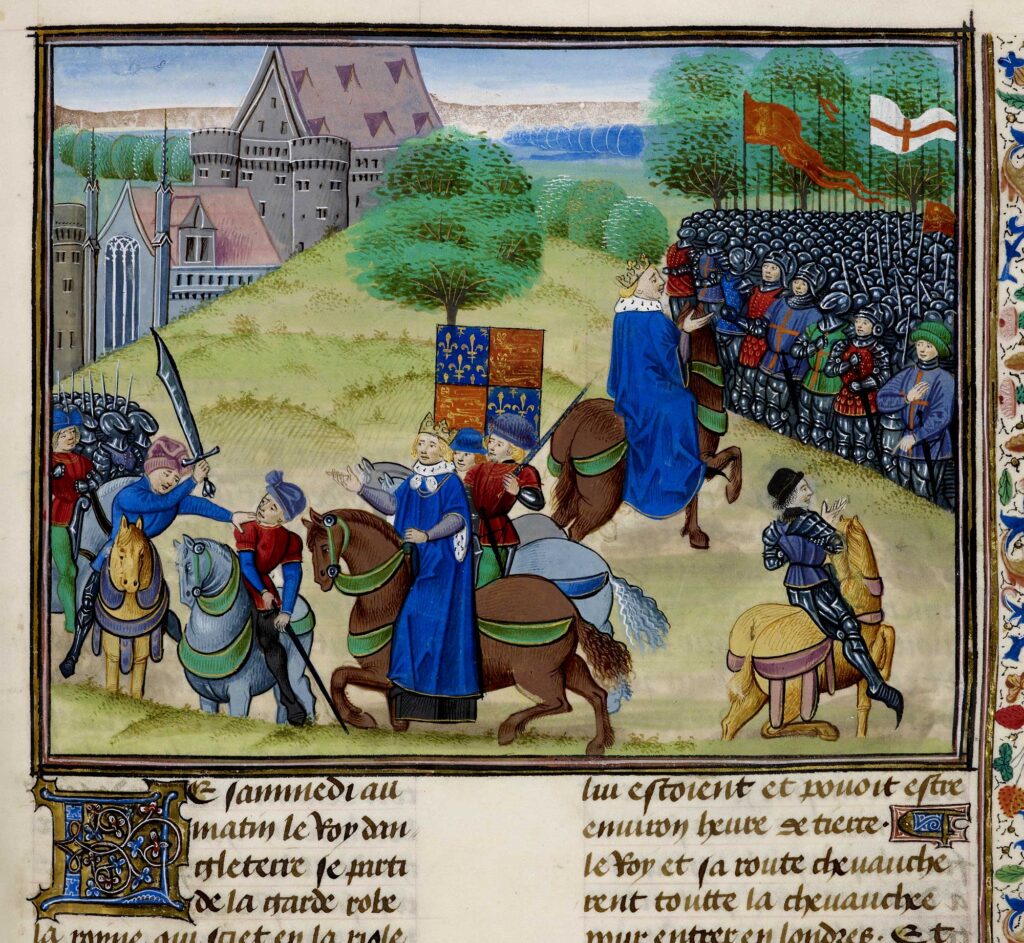 Le sammedi au
matin le Roy dan
gleterre se parti
de la garde robe
la royne qui sciet en la riole
lui estoient et pouoit estre
enuiron heure de tierce.
le Roy et sa route cheuauche
rent toutte la chauchee
pour entrer en londres. Et